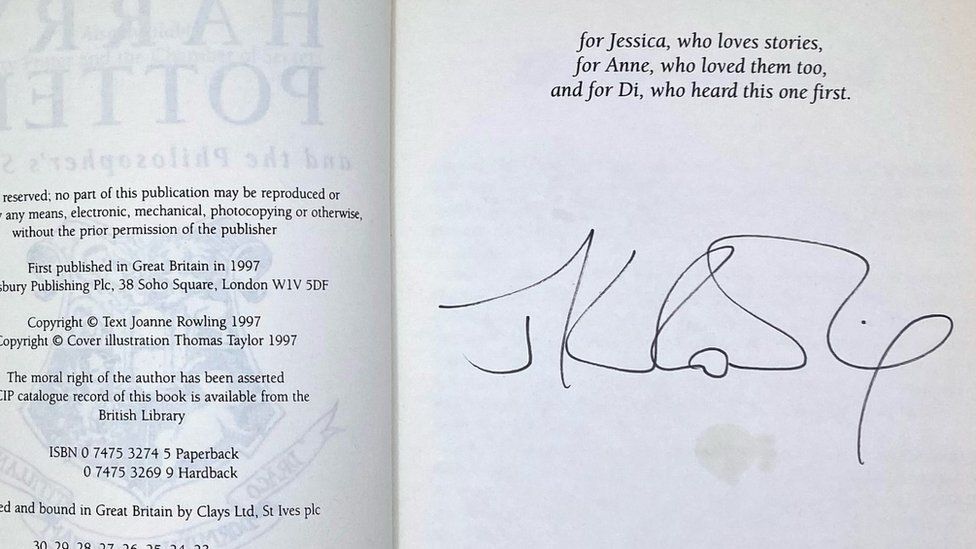 HARR
POTTE
and the Philosopher's S
reserved; no part of this publication may be reproduced or
any means, electronic, mechanical, photocopying or otherwise,
without the prior permission of the publisher
First published in Great Britain in 1997
sbury Publishing Plc, 38 Soho Square, London W1V 5DF
Copyright © Text Joanne Rowling 1997
Copyright © Cover illustration Thomas Taylor 1997
The moral right of the author has been asserted
CIP catalogue record of this book is available from the
British Library
ISBN 0 7475 3274 5 Paperback
0 7475 3269 9 Hardback
ed and bound in Great Britain by Clays Ltd, St Ives plc
30 29 28 27 26 25 24 23
for Jessica, who loves stories,
for Anne, who loved them too,
and for Di, who heard this one first.
JK Rowling